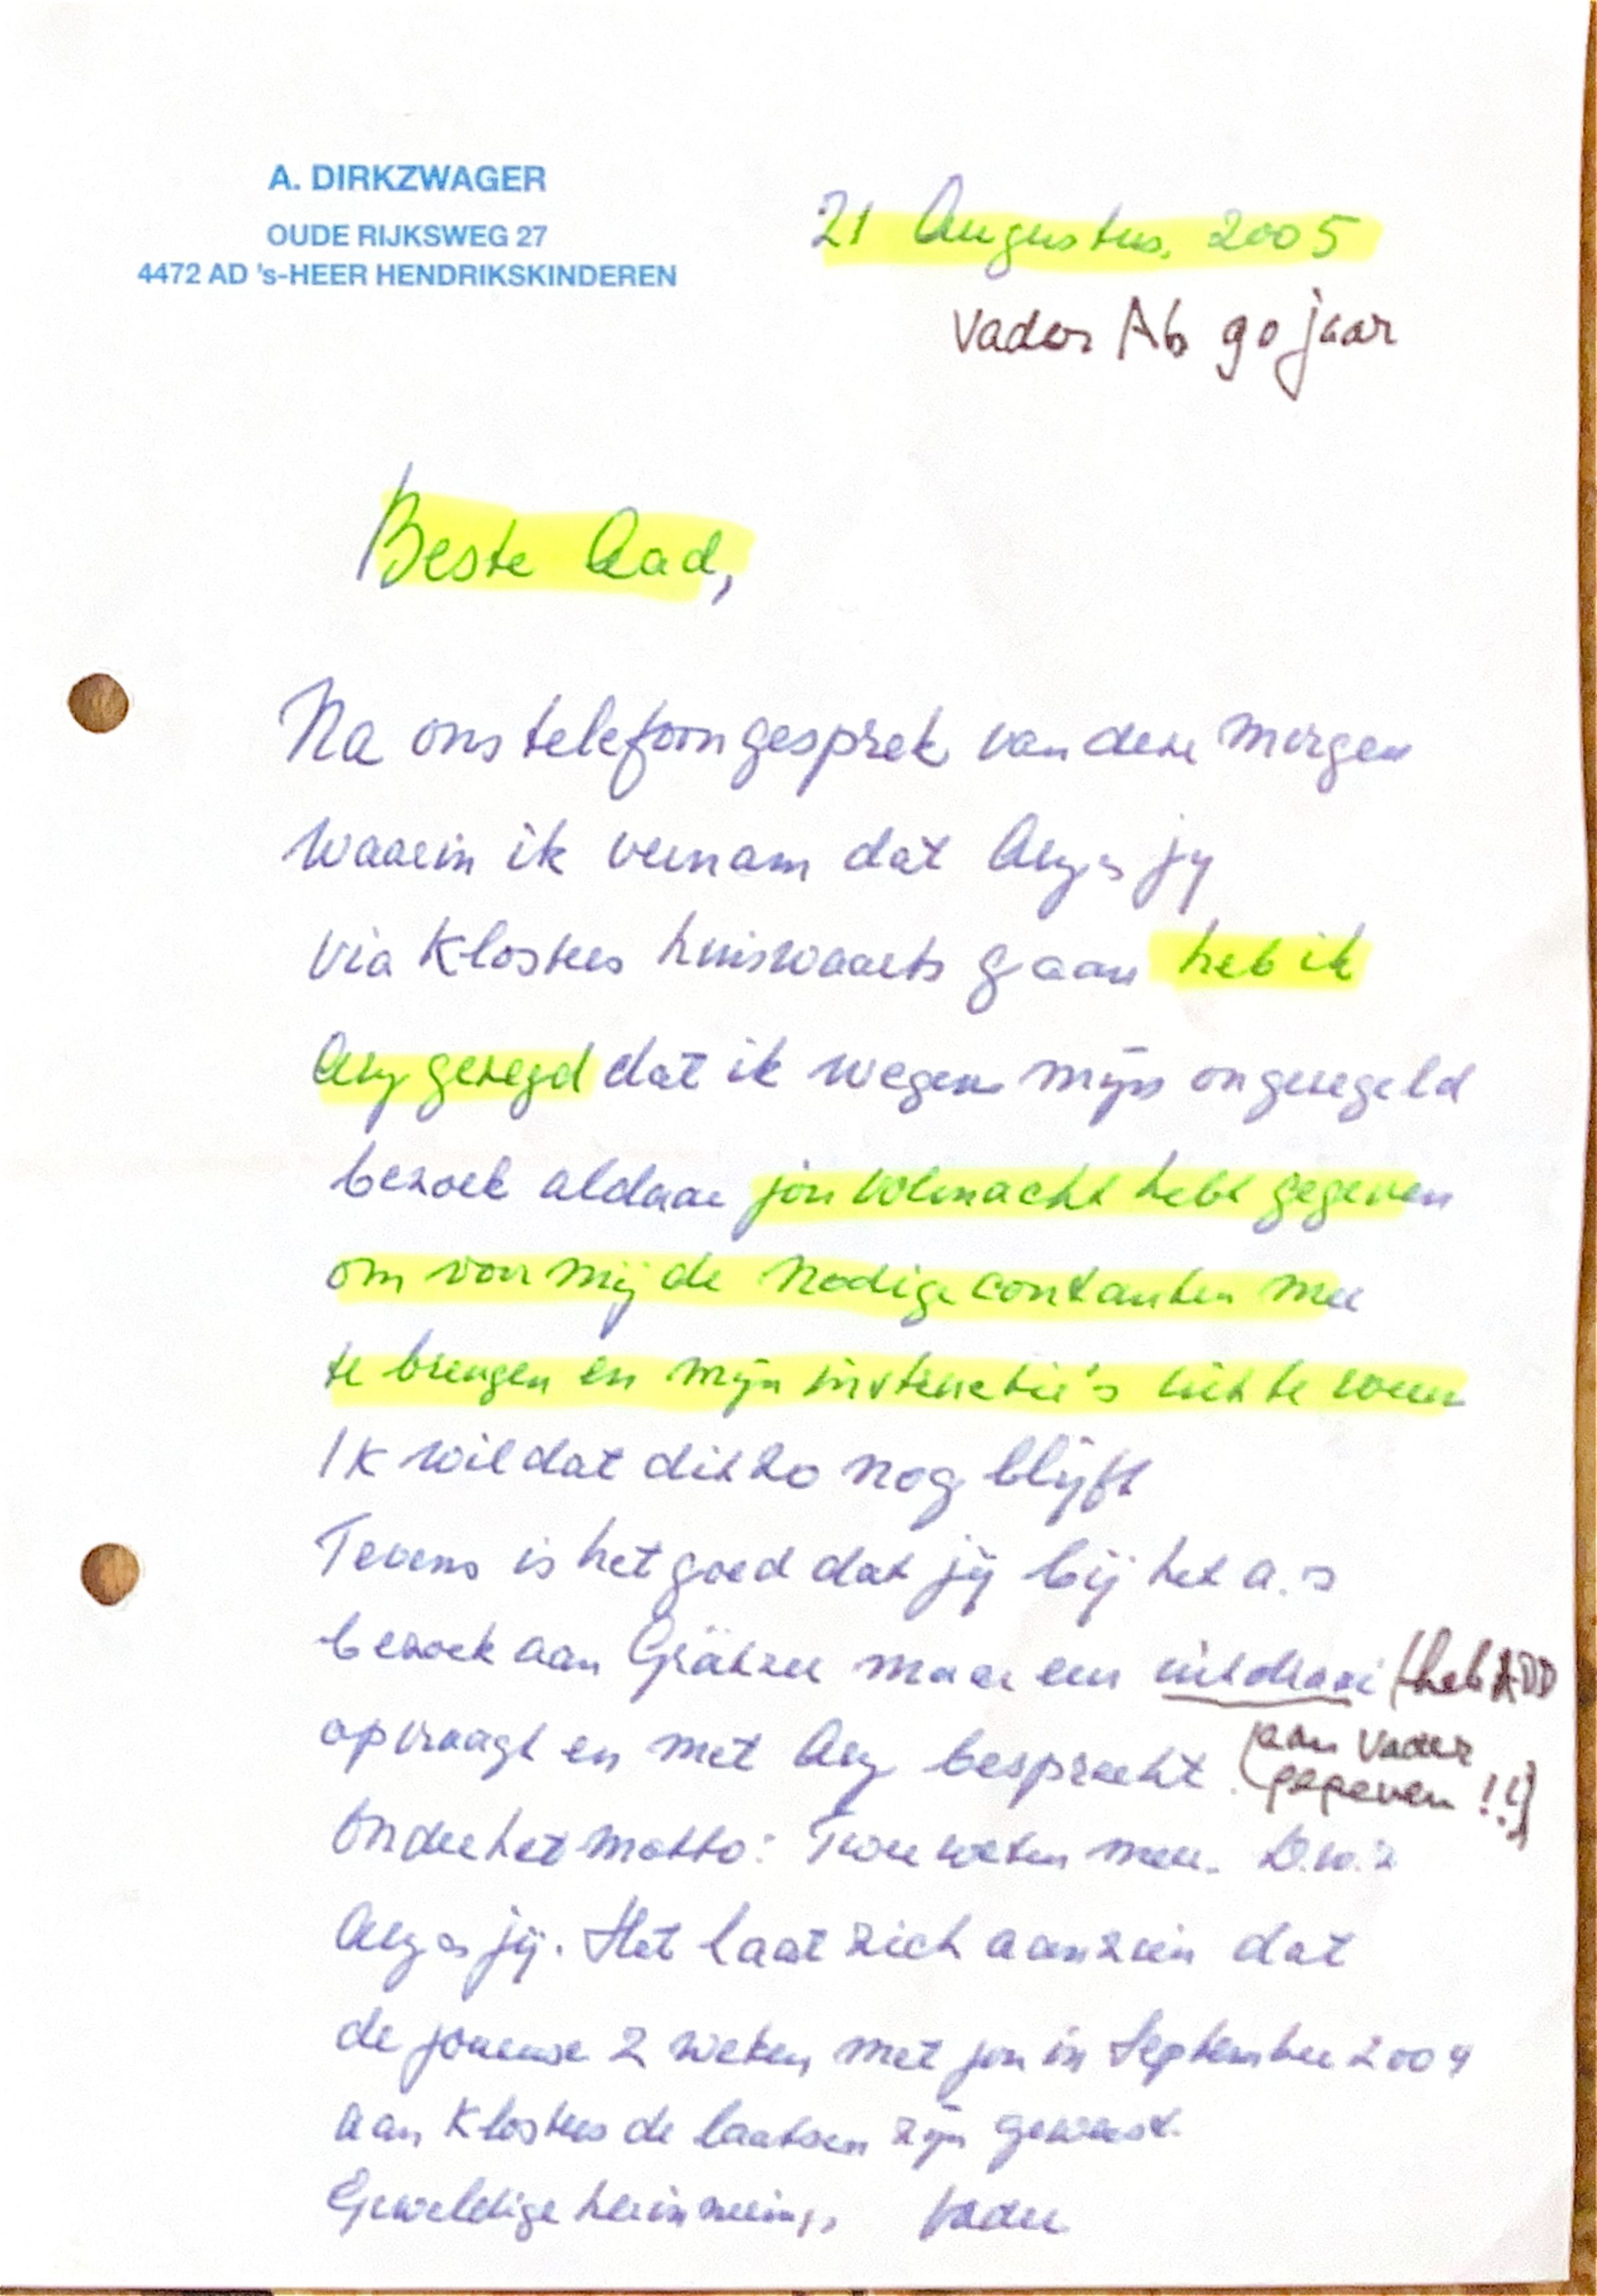 A. DIRKZWAGER
OUDE RIJKSWEG 27
4472 AD 's-HEER HENDRIKSKINDEREN
21 Augustus, 2005
Vader Ab 90 jaar
Beste Aad,
Na ons telefoongesprek van deze morgen
waarin ik vernam dat Ary en jy
via Klosters huiswaarts gaan heb ik
Ary gezegd dat ik wegens mijn ongeregeld
bezoek aldaar jou volmacht hebt gegeven
om voor mij de nodige contanten mee
te brengen en mijn instructie's uit te voeren
Ik wil dat dit zo nog blijft
Tevens is het goed dat jij bij het a.s
bezoek aan Grätzer maar een uitdraai (heb ADD
opvraagt en met Ary bespreekt. aan vader
gegeven !!)
Onder het motto: Twee weten meer. D.w.z
Ary en jij. Het laat zich aanzien dat
de jouwse 2 weken met jou in September 2004
aan Klosters de laatsen zijn geweest.
Geweldige herinnering, Vader